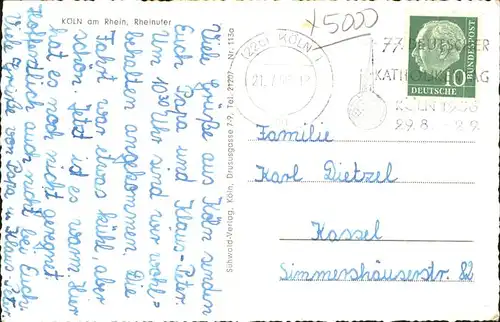 KÖLN am Rhein, Rheinufer
Viele Grüße aus Köln senden
Euch Papa und Klaus-Peter
Um 10 Uhr sind wir wohl-
behalten angekommen. Die
Fahrt war etwas kühl, aber
schön. Jetzt ist es warm. Hier
hat es noch nicht geregnet
Hoffentlich auch nicht bei Euch.
Viele Grüße von Papa u. Klaus-Peter
Schwold-Verlag, Köln, Drususgasse 7-9, Tel. 21297 - Nr. 113a
x5000
KÖLN
77. DEUTSCHER
KATHOLIKENTAG
KÖLN 1956
29.8. - 2.9.
DEUTSCHE
BUNDESPOST
10
Familie
Karl Dietzel
Kassel
Simmershäuserstr. 82